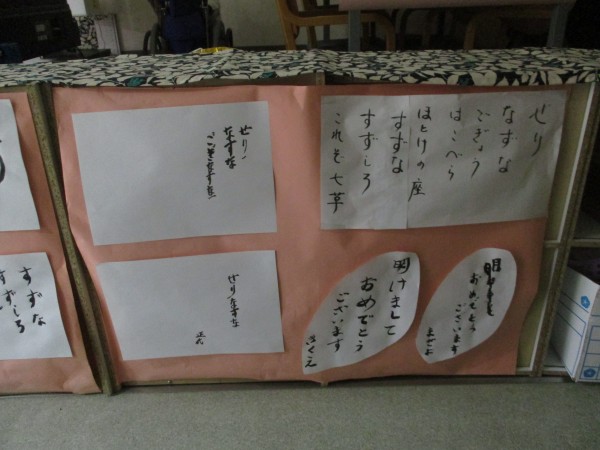 せり
なずな
ごぎょう
はこべら
ほとけの座
すずな
すずしろ
これぞ七草
せり
なずな
せり なずな
正六
明けまして
おめでとう
ございます
きくえ
おめでとう
ございます
すずな
すずしろ